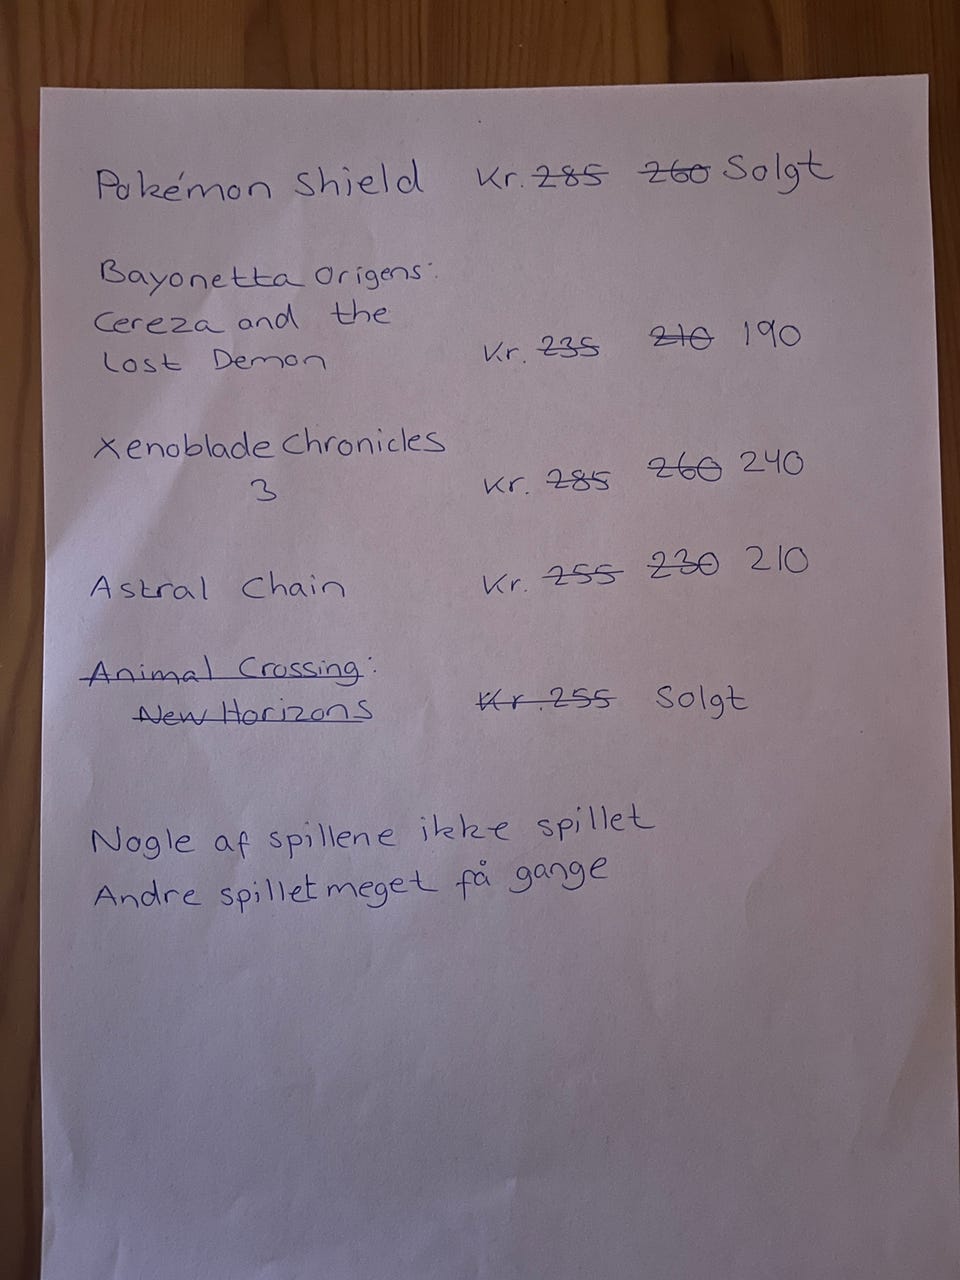 Pokémon Shield Kr. 285 260 Solgt
Bayonetta Origens:
Cereza and the
Lost Demon Kr. 235 210 190
Xenoblade Chronicles
3 Kr. 285 260 240
Astral Chain Kr. 255 230 210
Animal Crossing:
New Horizons Kr. 255 Solgt
Nogle af spillene ikke spillet
Andre spillet meget få gange